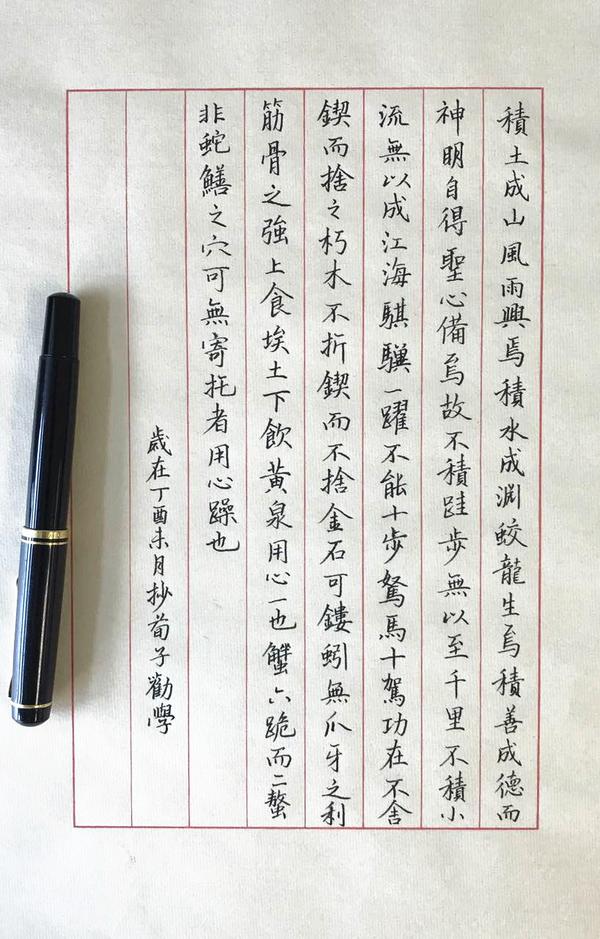 積土成山風雨興焉積水成淵蛟龍生焉積善成德而
神明自得聖心備焉故不積跬步無以至千里不積小
流無以成江海騏驥一躍不能十步駑馬十駕功在不舍
鍥而捨之朽木不折鍥而不捨金石可鏤蚓無爪牙之利
筋骨之強上食埃土下飲黃泉用心一也蟹六跪而二螯
非蛇鱔之穴可無寄托者用心躁也
歲在丁酉未月抄荀子勸學